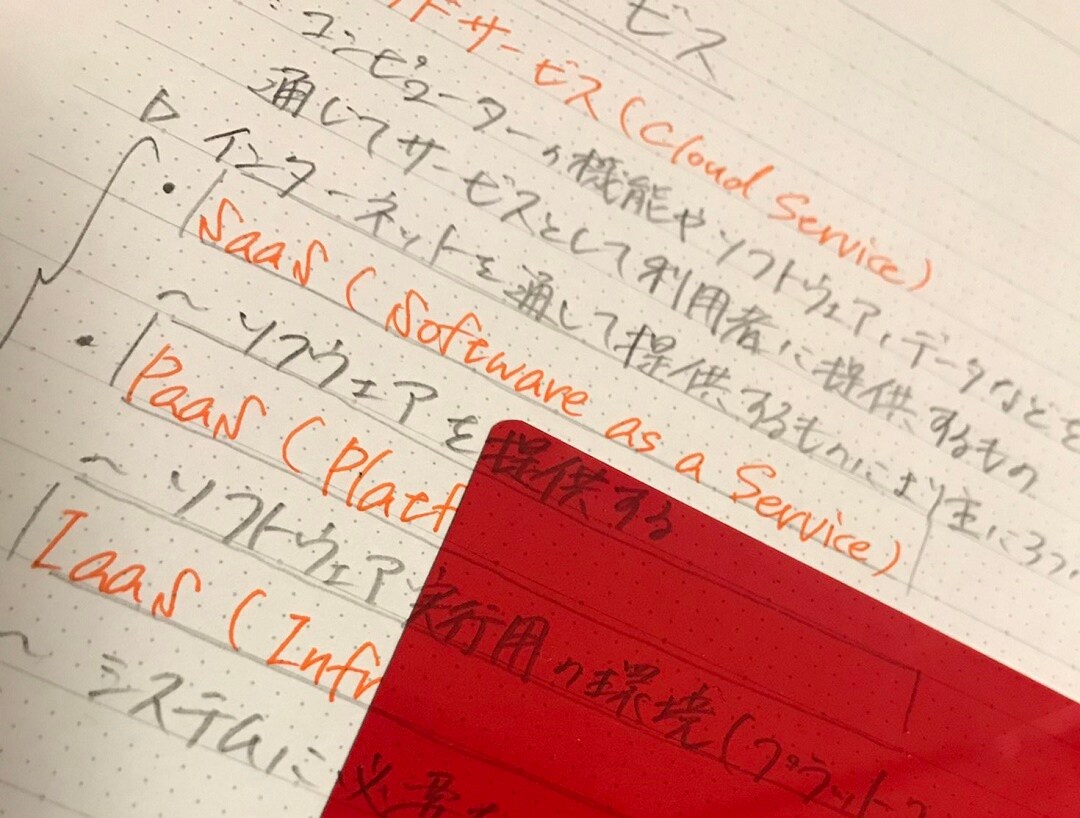 ービス
ドサービス(Cloud Service)
: コンピューターの機能やソフトウェア,データなどを
通じてサービスとして利用者に提供するもの
▷ インターネットを通して提供するものにより主に3つ
・SaaS(Software as a Service)
～ソフウェアを提供する
・PaaS(Platf
～ソフトウェア実行用の環境(プラットフ
IaaS(Infr
～システムに必要な